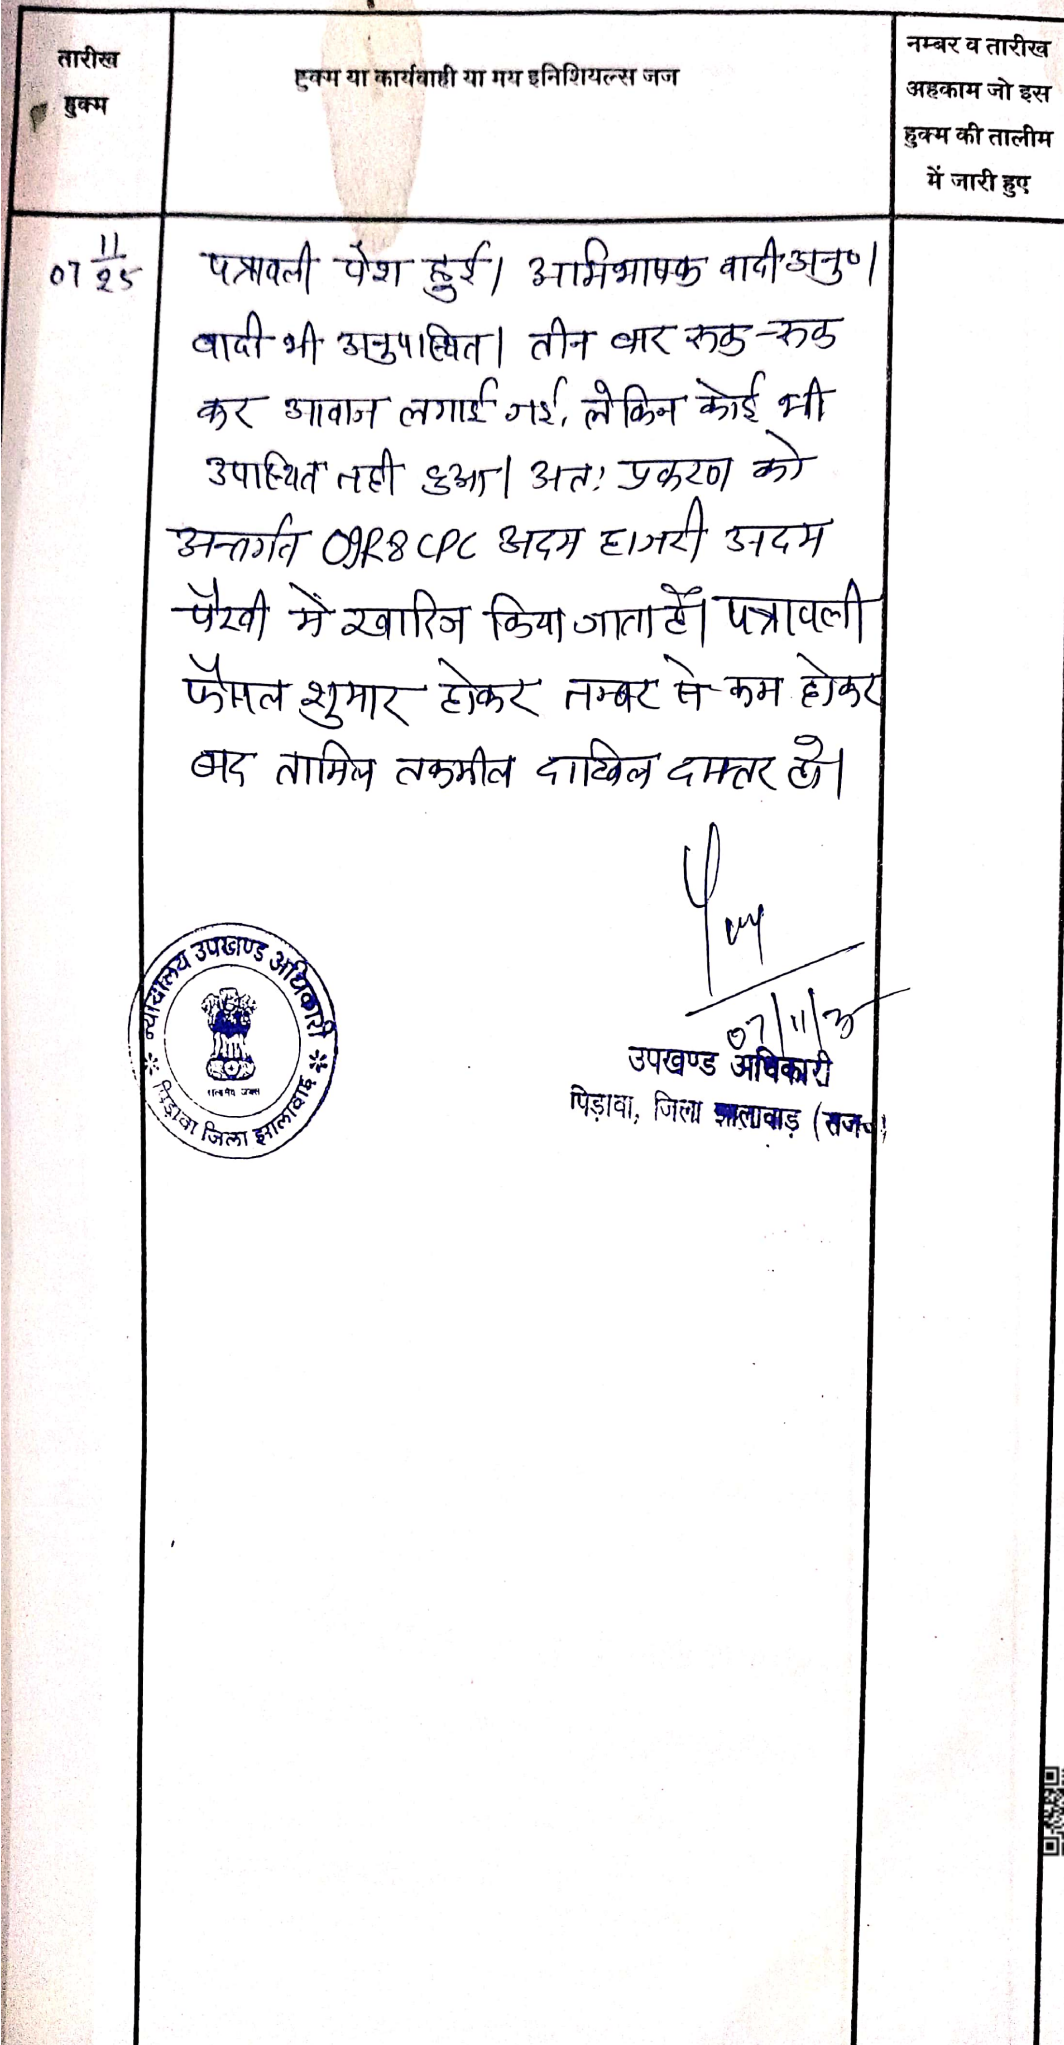 तारीख
हुक्म
हुक्म या कार्यवाही या मय इनिशियल्स जज
नम्बर व तारीख
अहकाम जो इस
हुक्म की तालीम
में जारी हुए
07 11/25
पत्रावली पेश हुई। अभिभाषक वादी अनु०।
वादी भी अनुपस्थित। तीन बार रूक-रूक
कर आवाज लगाई गई, लेकिन कोई भी
उपस्थित नही हुआ। अतः प्रकरण को
अन्तर्गत O9R8 CPC अदम हाजरी अदम
पैरवी में खारिज किया जाता है। पत्रावली
फैसल शुमार होकर नम्बर से कम होकर
बाद तामिल तकमील दाखिल दफ्तर हो।
07/11/25
उपखण्ड अधिकारी
पिड़ावा, जिला झालावाड़ (राज०)
न्यायालय उपखण्ड अधिकारी
सत्यमेव जयते
पिड़ावा जिला झालावाड़